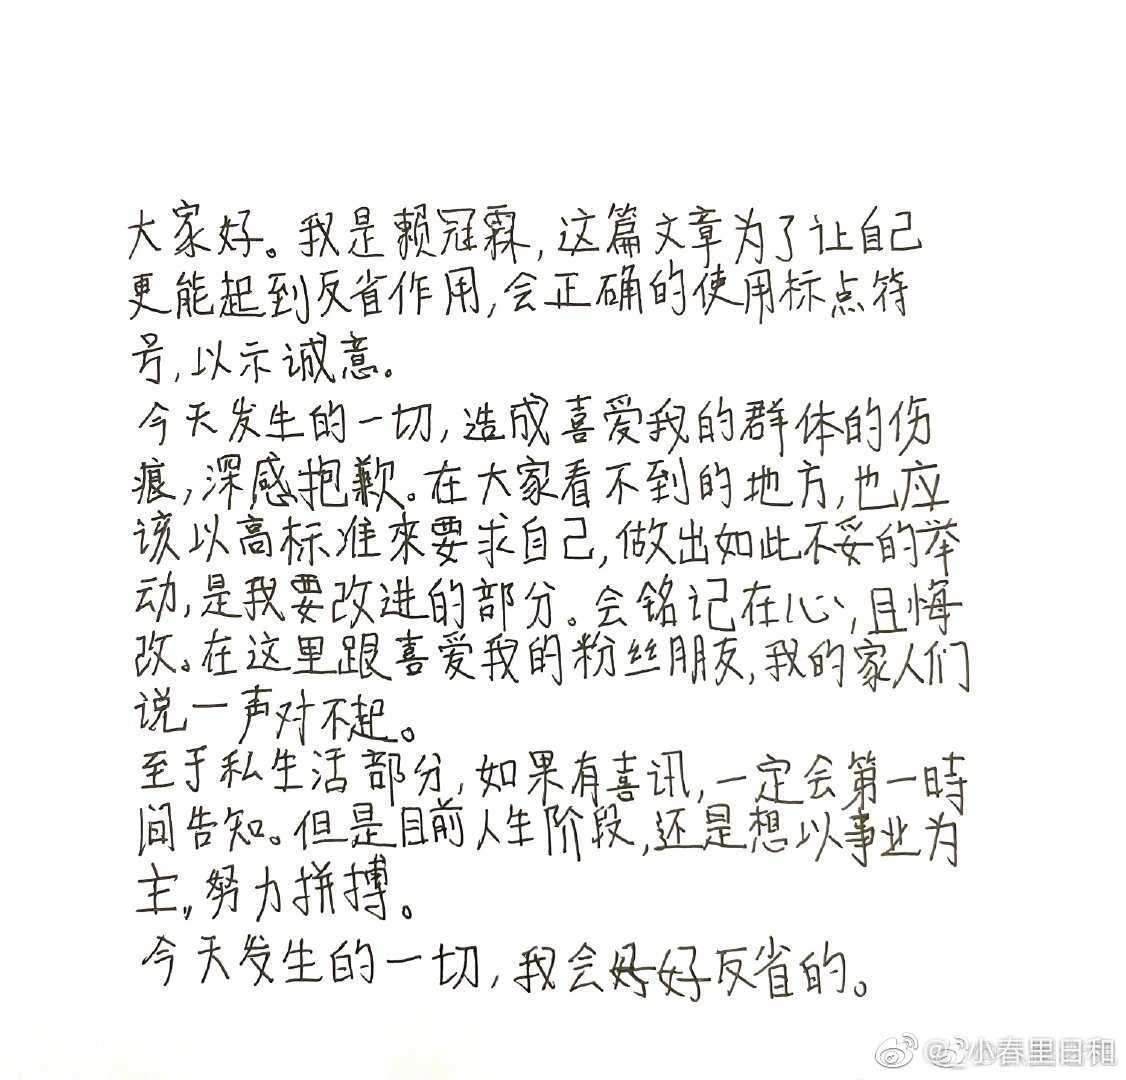 大家好。我是赖冠霖,这篇文章为了让自己
更能起到反省作用,会正确的使用标点符
号,以示诚意。
今天发生的一切,造成喜爱我的群体的伤
痕,深感抱歉。在大家看不到的地方,也应
该以高标准來要求自己,做出如此不妥的举
动,是我要改进的部分。会铭记在心,且悔
改。在这里跟喜爱我的粉丝朋友,我的家人们
说一声对不起。
至于私生活部分,如果有喜讯,一定会第一時
间告知。但是目前人生阶段,还是想以事业为
主,努力拼搏。
今天发生的一切,我会好好反省的。
@小春里日和